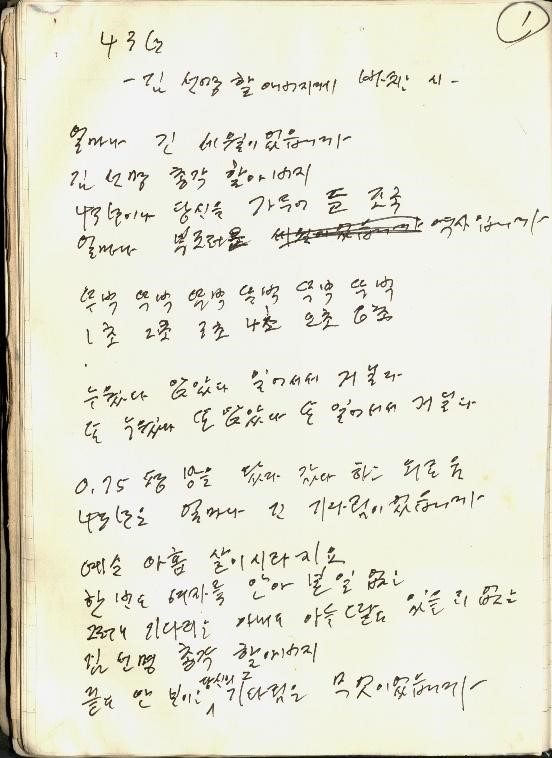 1
43년
- 김 선명 할아버지께 바친 시 -
얼마나 긴 세월이었습니까
김 선명 총각 할아버지
43년이나 당신을 가두어 둔 조국
얼마나 부끄러운 역사입니까
뚜벅 뚜벅 뚜벅 뚜벅 뚜벅 뚜벅
1초 2초 3초 4초 5초 6초
.
누웠다 앉았다 일어서서 거닐다
또 누웠다 또 앉았다 또 일어서서 거닐다
0.75평 방을 왔다 갔다 하는 외로움
43년은 얼마나 긴 기다림이었습니까
예순 아홉 살이시라지요
한 번도 여자를 안아 본 일 없는
기다리는 아내도 아들 딸도 있을 리 없는
김 선명 총각 할아버지
끝도 안 보이는 당신의 그 기다림은 무엇이었습니까